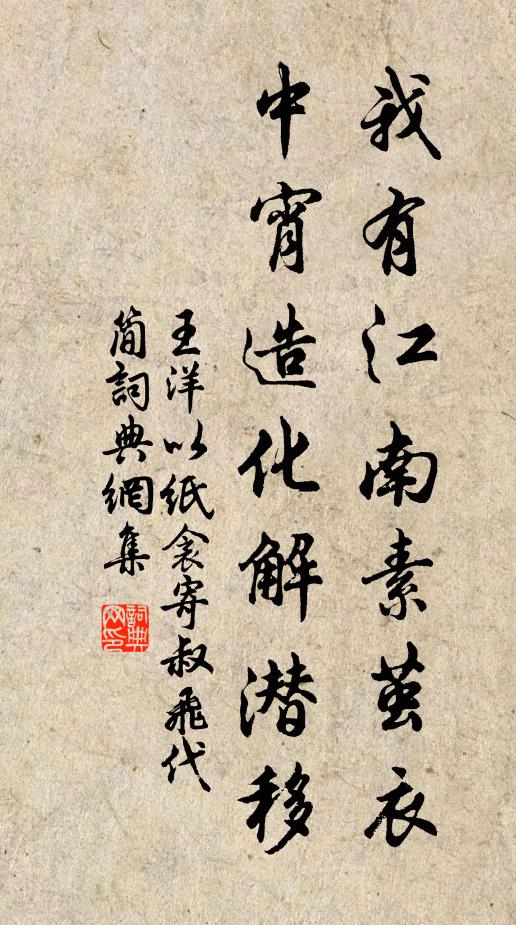 我有江南素茧衣
中宵造化解潜移
王洋以紙衾寄叔飛代
简詞典網集
詞典網印